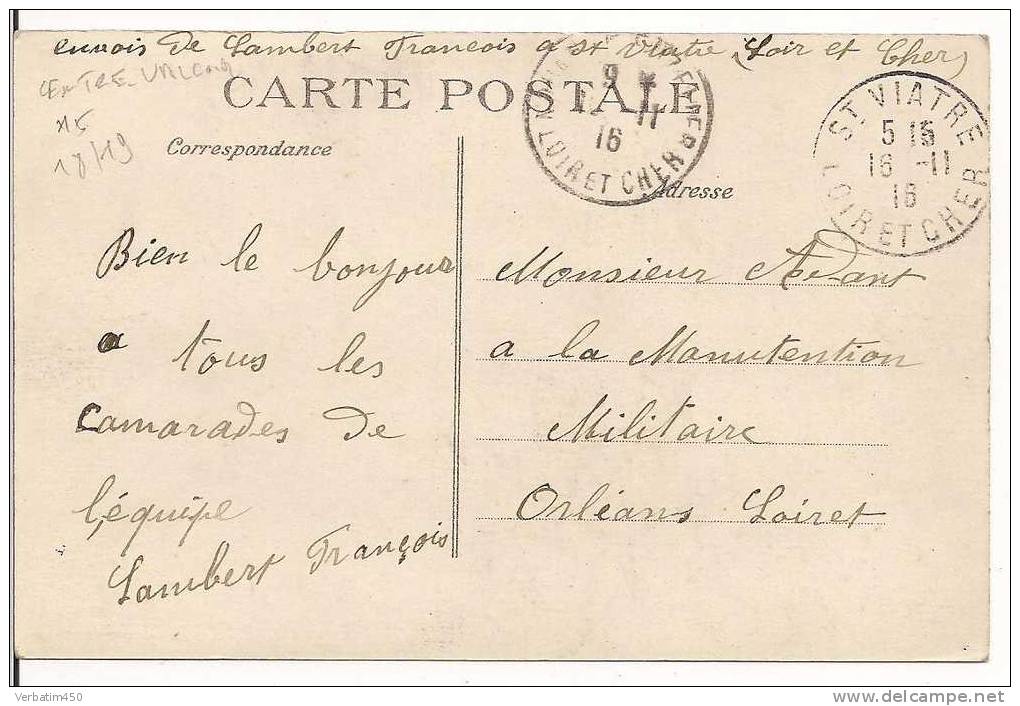 envois de Lambert Francois a St Viatre (Loir et Cher)
CARTE POSTALE
15
18/19
Correspondance
Adresse
9
11
16
LOIR ET CHER
ST VIATRE
5 15
16 -11
16
LOIR ET CHER
Bien le bonjour
a tous les
Camarades de
l'équipe
Lambert François
Monsieur
a la Manutention
Militaire
Orléans Loiret
Verbatim450
delcampe.net